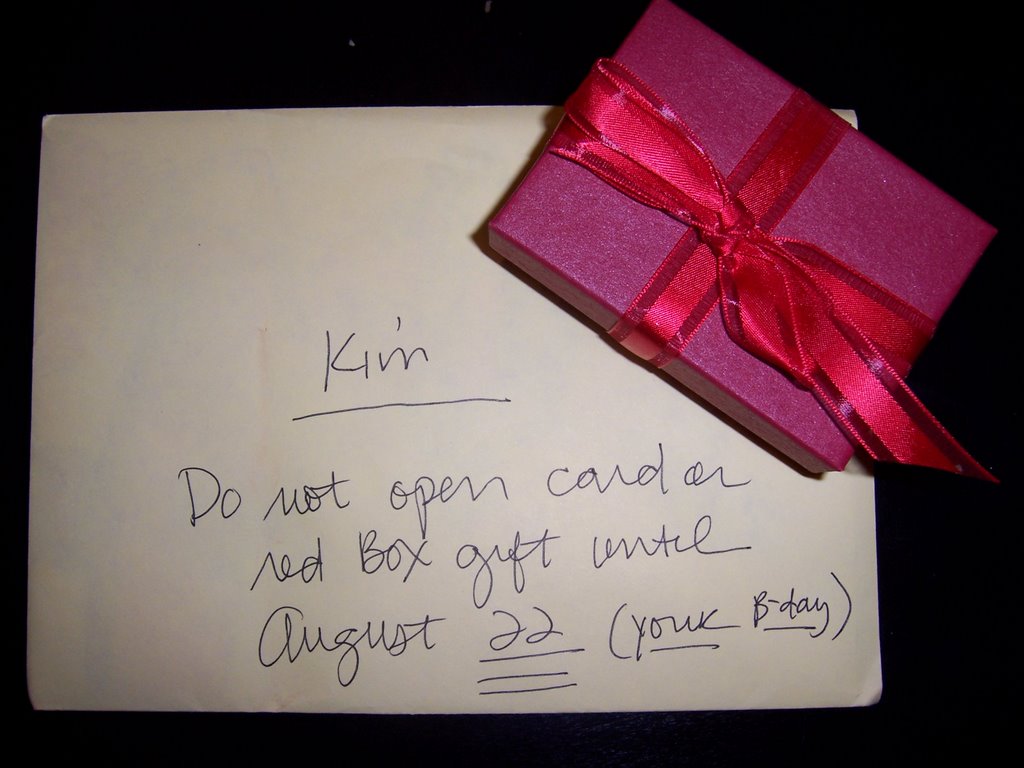 Kim
Do not open card or
red Box gift until
August 22 (your B-day)